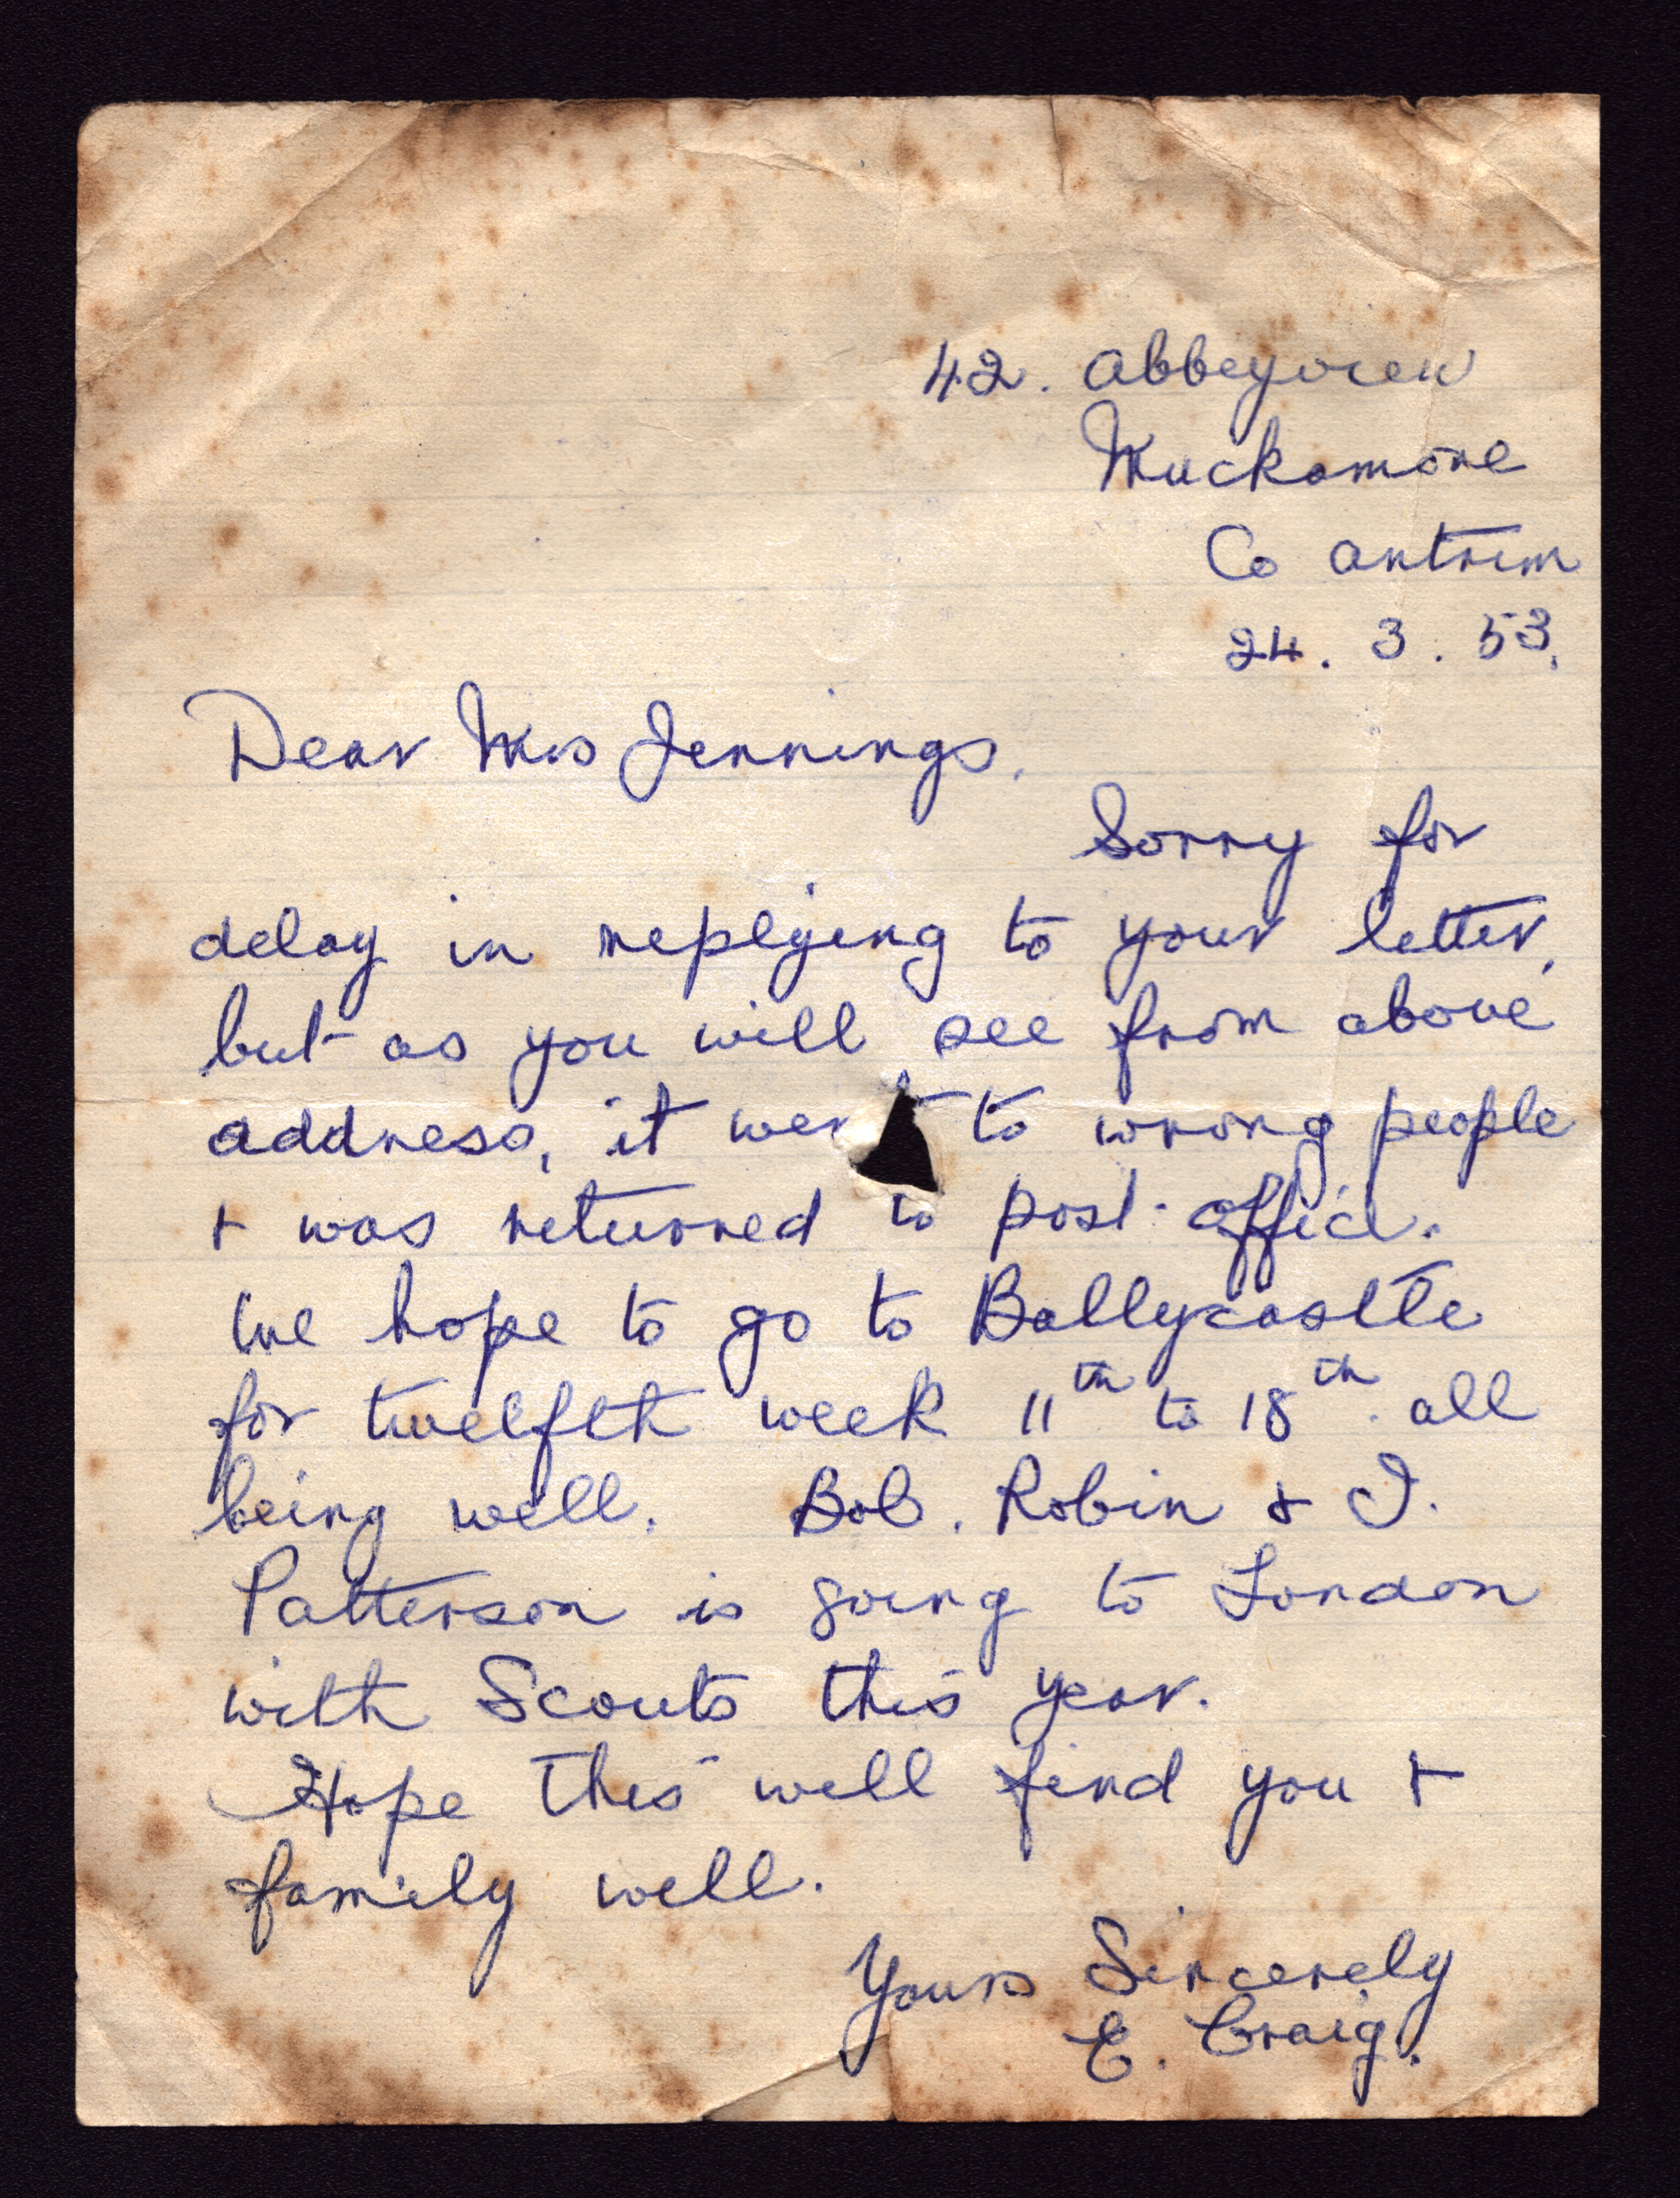 42. Abbeyview
Muckamore
Co Antrim
24. 3. 53.
Dear Mrs Jennings,
Sorry for
delay in replying to your letter,
but as you will see from above
address, it went to wrong people
+ was returned to post-office.
We hope to go to Ballycastle
for twelfth week 11th to 18th. all
being well. Bob. Robin & I.
Patterson is going to London
with Scouts this year.
Hope this will find you +
family well.
Yours Sincerely
E. Craig.